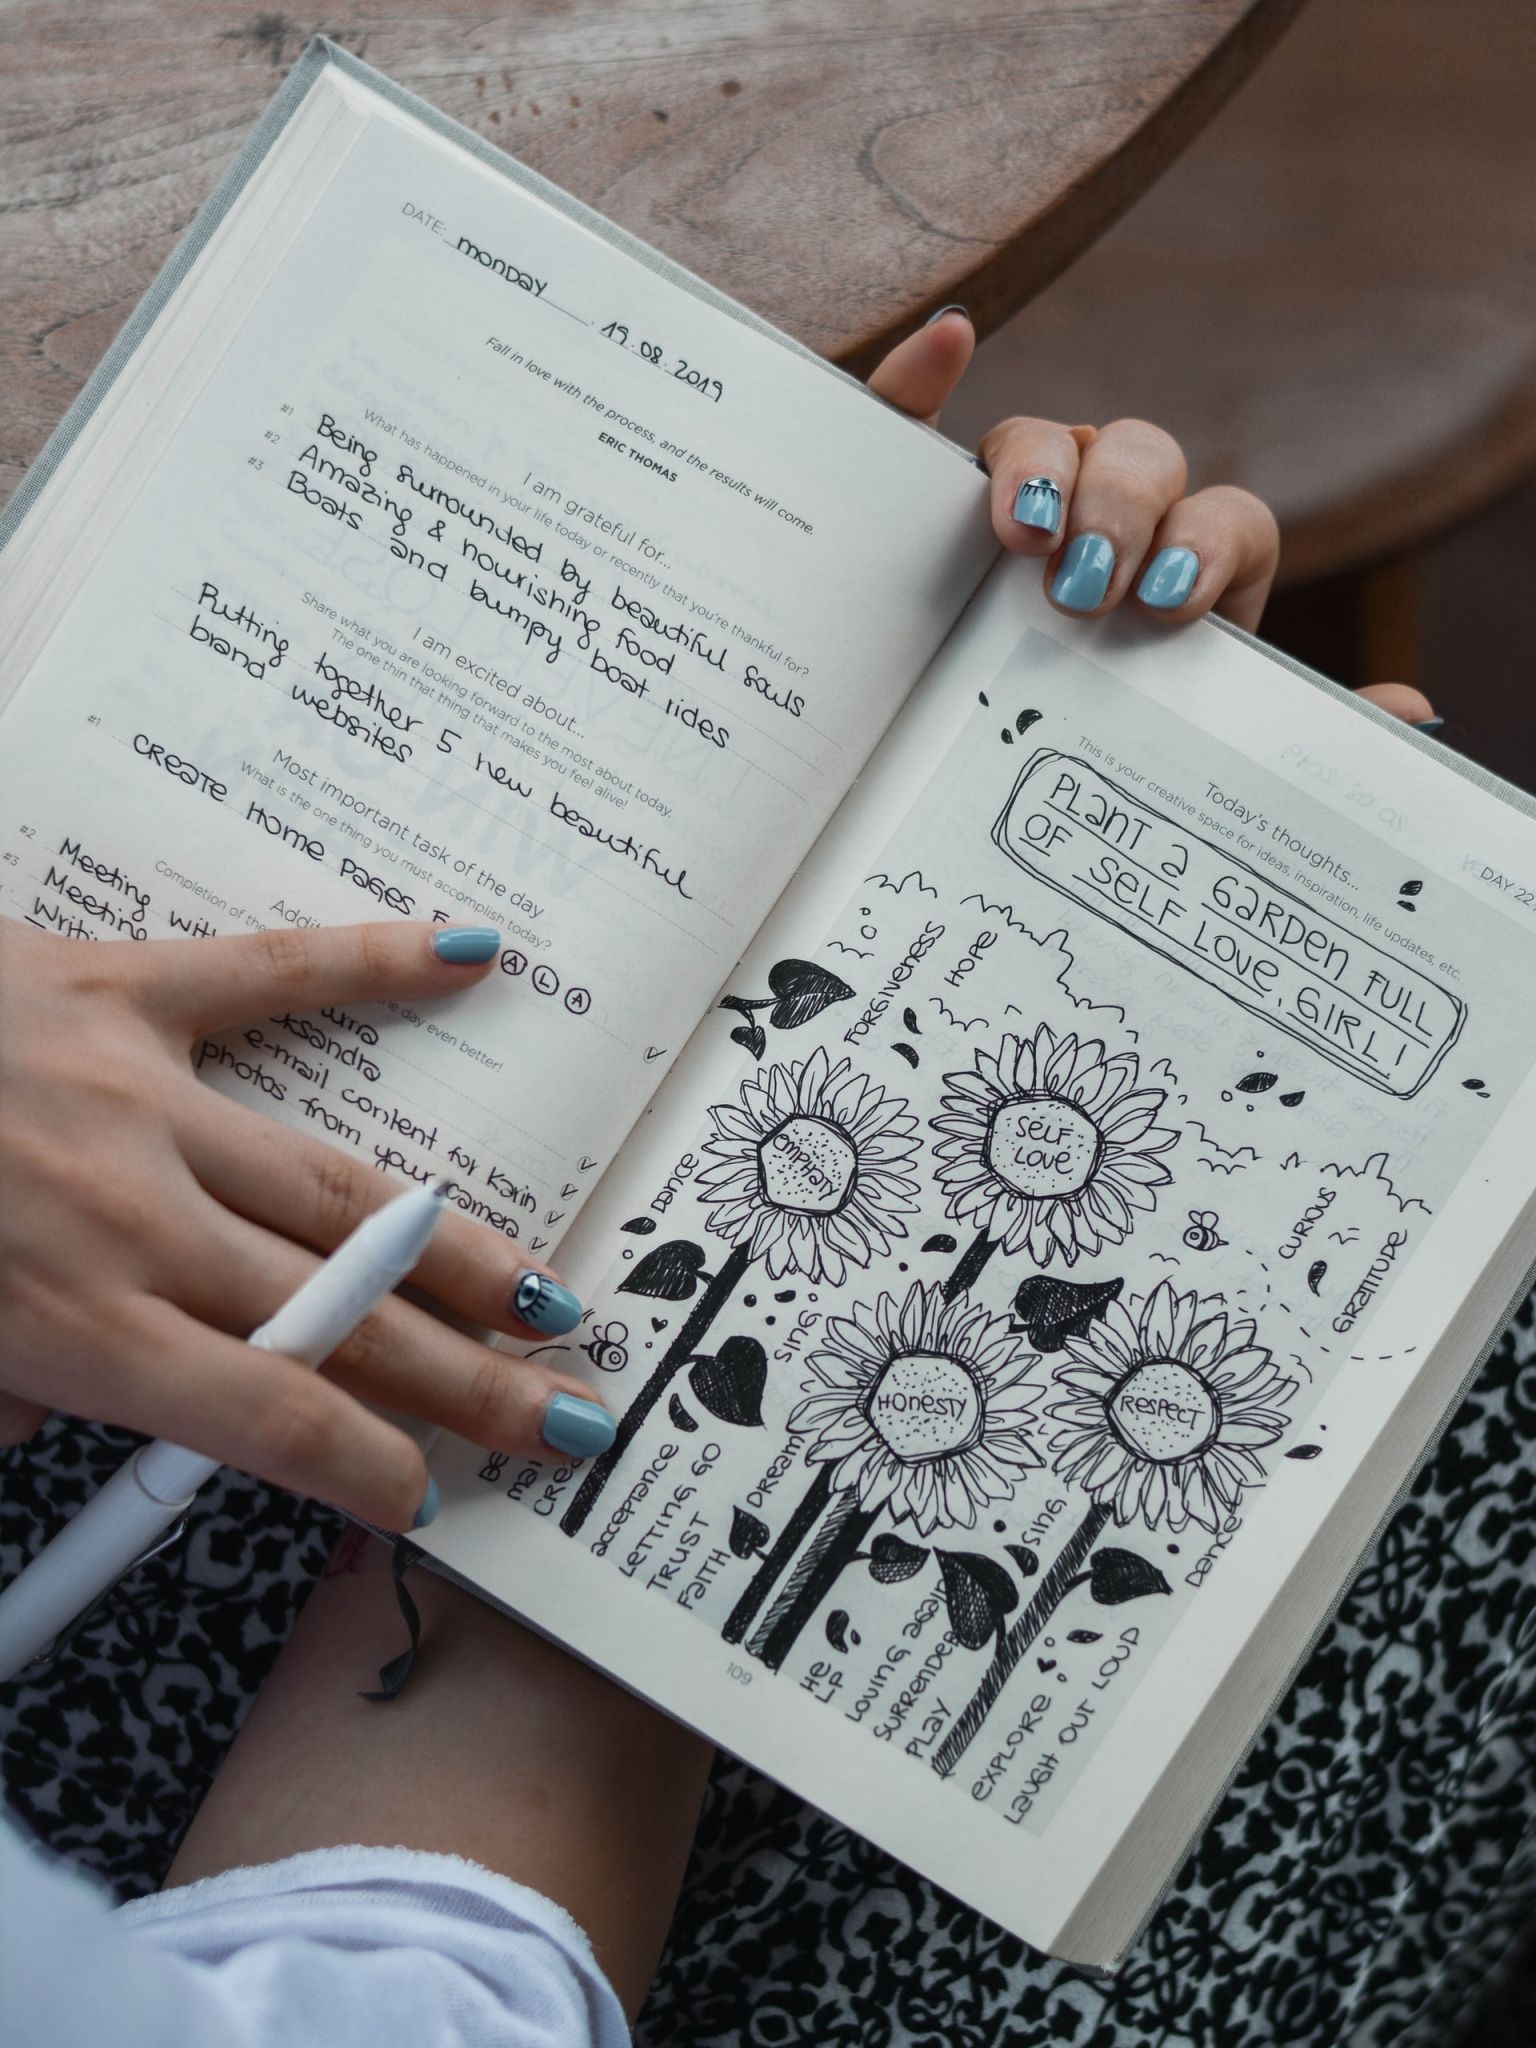 DATE: monday 19.08.2019
Fall in love with the process, and the results will come.
ERIC THOMAS
I am grateful for...
What has happened in your life today or recently that you're thankful for?
#1 Being surrounded by beautiful souls
#2 Amazing & nourishing food
#3 Boats and bumpy boat rides
I am excited about...
Share what you are looking forward to the most about today.
The one thin that thing that makes you feel alive!
Putting together 5 new beautiful
brand websites
Most important task of the day
What is the one thing you must accomplish today?
#1 CREATE HOME PAGES A L A
Completion of
the day even better!
#2 Meeting with
#3 Meeting
e-mail content for Karin
photos from your camera
DAY 22
Today's thoughts...
This is your creative space for ideas, inspiration, life updates, etc.
PLANT a GARDEN FULL
OF SELF LOVE, GIRL!
FORGIVENESS
HOPE
EMPHATY
SELF
LOVE
DANCE
CURIOUS
GRATITUDE
SING
HONESTY
RESPECT
acceptance
LETTING GO
TRUST
FAITH
DREAM
SING
Dance
HE
LP
LOVING again
SURRENDER
PLAY
EXPLORE
LAUGH OUT LOUD
109